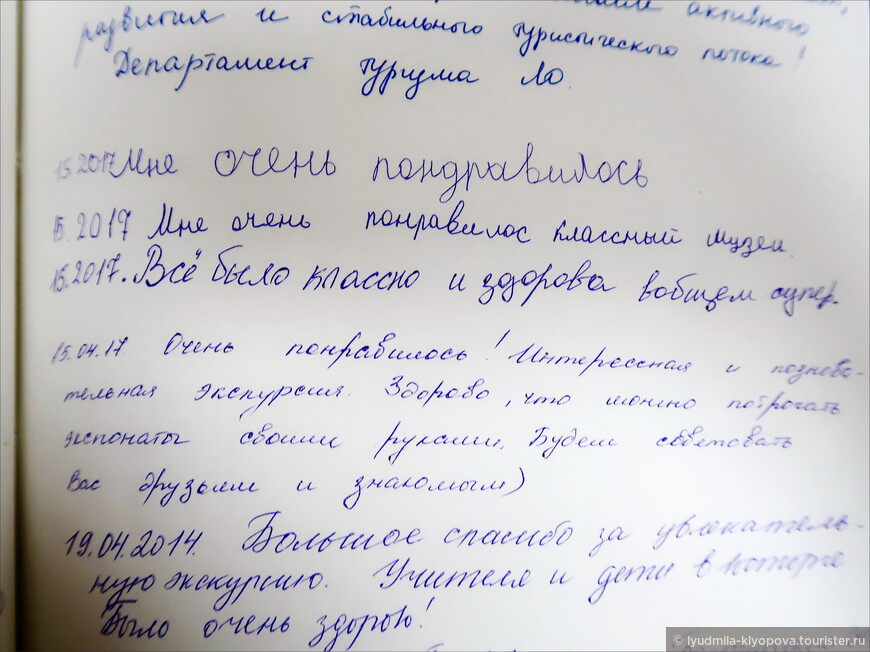 активного
развития и стабильного туристического потока!
Департамент туризма ЛО.
15.2017 Мне очень пондравилось
15.2017 Мне очень понравилос классный музей.
15.2017. Всё было классно и здорова вобщем супер.
15.04.17. Очень понравилось! Интересная и познова-
тельная экскурсия. Здорово, что можно потрогать
экспонаты своими руками. Будем советовать
Вас друзьям и знакомым)
19.04.2014. Большое спасибо за увлекатель-
ную экскурсию. Учителя и дети в
Было очень здоро!
© lyudmila-klyopova.tourister.ru